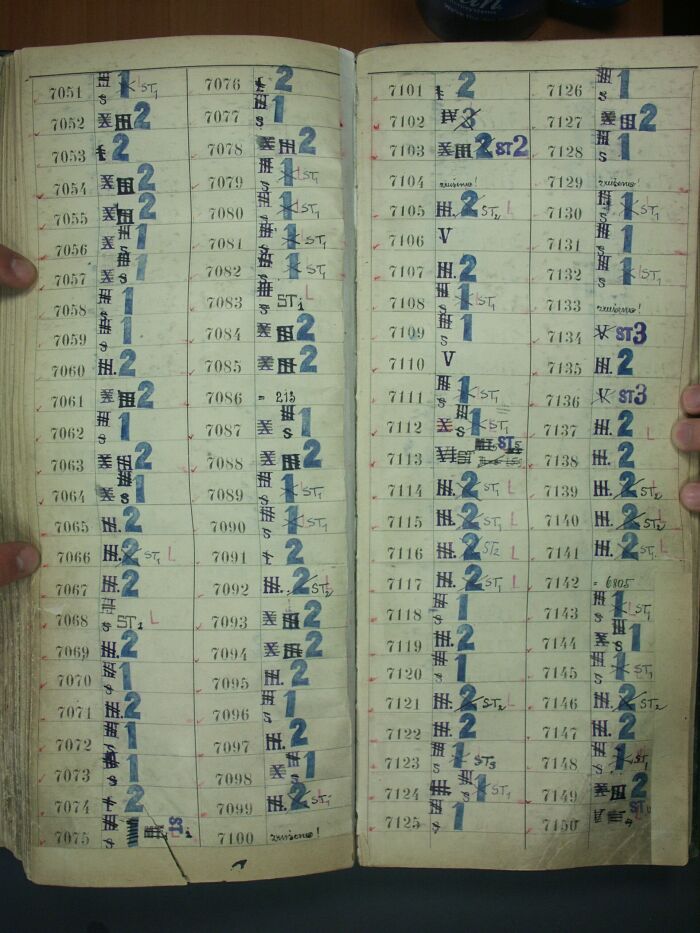 7051 1 ST1
7052 X III 2
7053 2
7054 X III 2
7055 X III 2
7056 X 1
7057 X S 1
7058 S 1
7059 S 1
7060 III. 2
7061 X III 2
7062 S 1
7063 X III 2
7064 X S 1
7065 III. 2
7066 III. 2 ST1 L
7067 III. 2
7068 S ST1 L
7069 III. 2
7070 S 1
7071 III. 2
7072 S 1
7073 S 1
7074 2
7075 S ST1
7076 2
7077 S 1
7078 X III 2
7079 S 1 ST1
7080 S 1 ST1
7081 S 1 ST1
7082 S 1 ST1
7083 S ST1 L
7084 X III 2
7085 X III 2
7086 = 213
7087 X S 1
7088 X III 2
7089 S 1 ST1
7090 S 1 ST1
7091 2
7092 III. 2 ST2
7093 X III 2
7094 X III 2
7095 III. 2
7096 S 1
7097 III. 2
7098 X 1
7099 III. 2 ST1
7100 zrušeno!
7101 2
7102 IV 3
7103 X III 2 ST2
7104 zrušeno!
7105 III. 2 ST2 L
7106 V
7107 III. 2
7108 S 1 ST1
7109 S 1
7110 V
7111 S 1 ST1
7112 X S 1 ST1
7113 VI ST ST5
7114 III. 2 ST1 L
7115 III. 2 ST1 L
7116 III. 2 ST2 L
7117 III. 2 ST1 L
7118 S 1
7119 III. 2
7120 S 1
7121 III. 2 ST2 L
7122 III. 2
7123 S 1 ST3
7124 S 1 ST1
7125 S 1
7126 S 1
7127 X III 2
7128 S 1
7129 zrušeno!
7130 S 1 ST1
7131 S 1
7132 S 1 ST1
7133 zrušeno!
7134 V ST3
7135 III. 2
7136 V ST3
7137 III. 2 L
7138 III. 2
7139 III. 2 ST2
7140 III. 2 ST2
7141 III. 2 ST1 L
7142 = 6805
7143 S 1 ST1
7144 X S 1
7145 S 1 ST1
7146 III. 2 ST2
7147 III. 2
7148 S 1 ST1
7149 X III 2
7150 ST